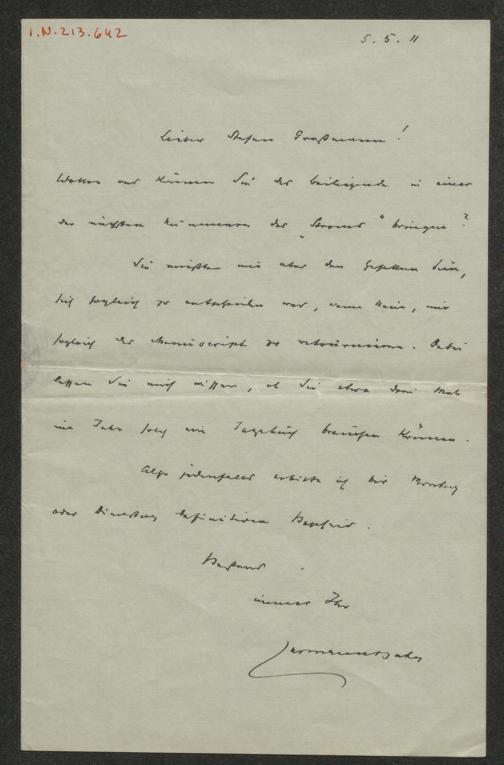 I.N. 213.642
5. 5. 11
Lieber Stefan Großmann!
Wollen und können Sie das beiliegende in einer
der nächsten Nummern des „Strom“ bringen?
Sie müßten mir aber den Gefallen tun,
sich sogleich zu entscheiden und, wenn Nein, mir
sogleich das Manuscript zu retournieren. Dabei
lassen Sie mich wissen, ob Sie etwa drei Mal
im Jahr solch ein Tagebuch brauchen können.
Also jedenfalls erbitte ich bis Montag
oder Dienstag definitiven Bescheid.
Bestens
immer Ihr
Hermann Bahr